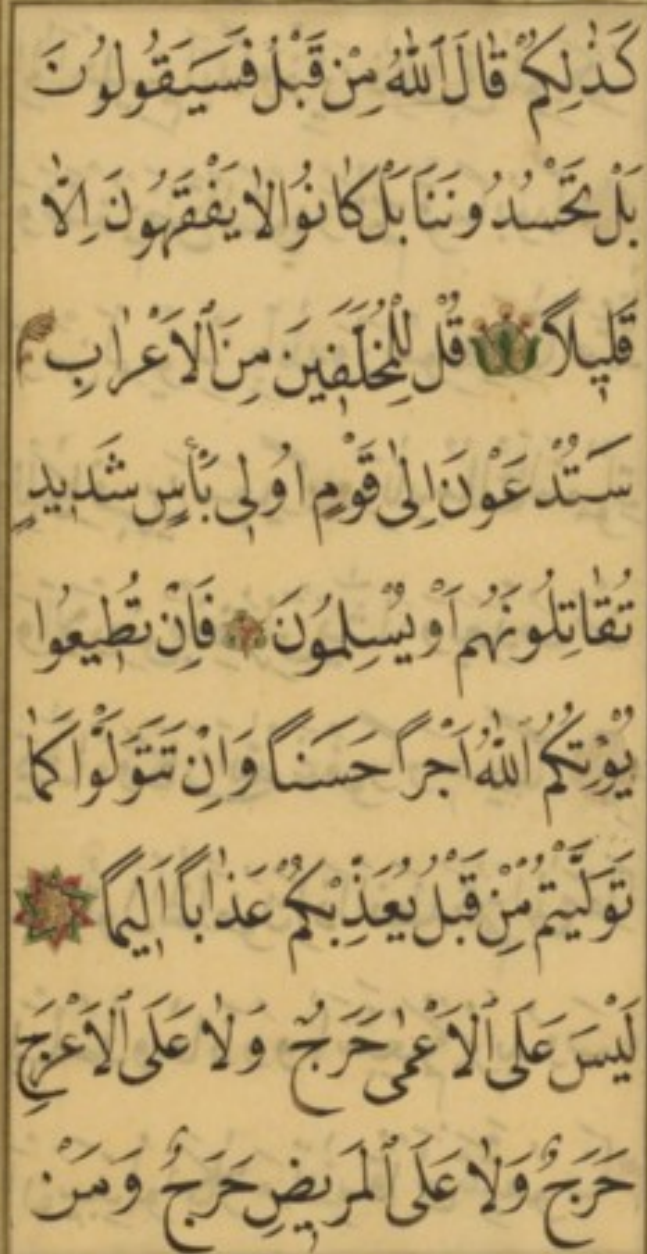 كَذٰلِكُمْ قَالَ ٱللّٰهُ مِنْ قَبْلُ فَسَيَقُولُونَ
بَلْ تَحْسُدُونَنَا بَلْ كَانُوا لَا يَفْقَهُونَ اِلَّا
قَلٖيلاً قُلْ لِلْمُخَلَّفٖينَ مِنَ ٱلْاَعْرَابِ
سَتُدْعَوْنَ اِلٰى قَوْمٍ اُولٖى بَأْسٍ شَدٖيدٍ
تُقَاتِلُونَهُمْ اَوْ يُسْلِمُونَ فَاِنْ تُطٖيعُوا
يُؤْتِكُمُ ٱللّٰهُ اَجْراً حَسَناً وَاِنْ تَتَوَلَّوْا كَمَا
تَوَلَّيْتُمْ مِنْ قَبْلُ يُعَذِّبْكُمْ عَذَاباً اَلٖيماً
لَيْسَ عَلَى ٱلْاَعْمٰى حَرَجٌ وَلَا عَلَى ٱلْاَعْرَجِ
حَرَجٌ وَلَا عَلَى ٱلْمَرٖيضِ حَرَجٌ وَمَنْ